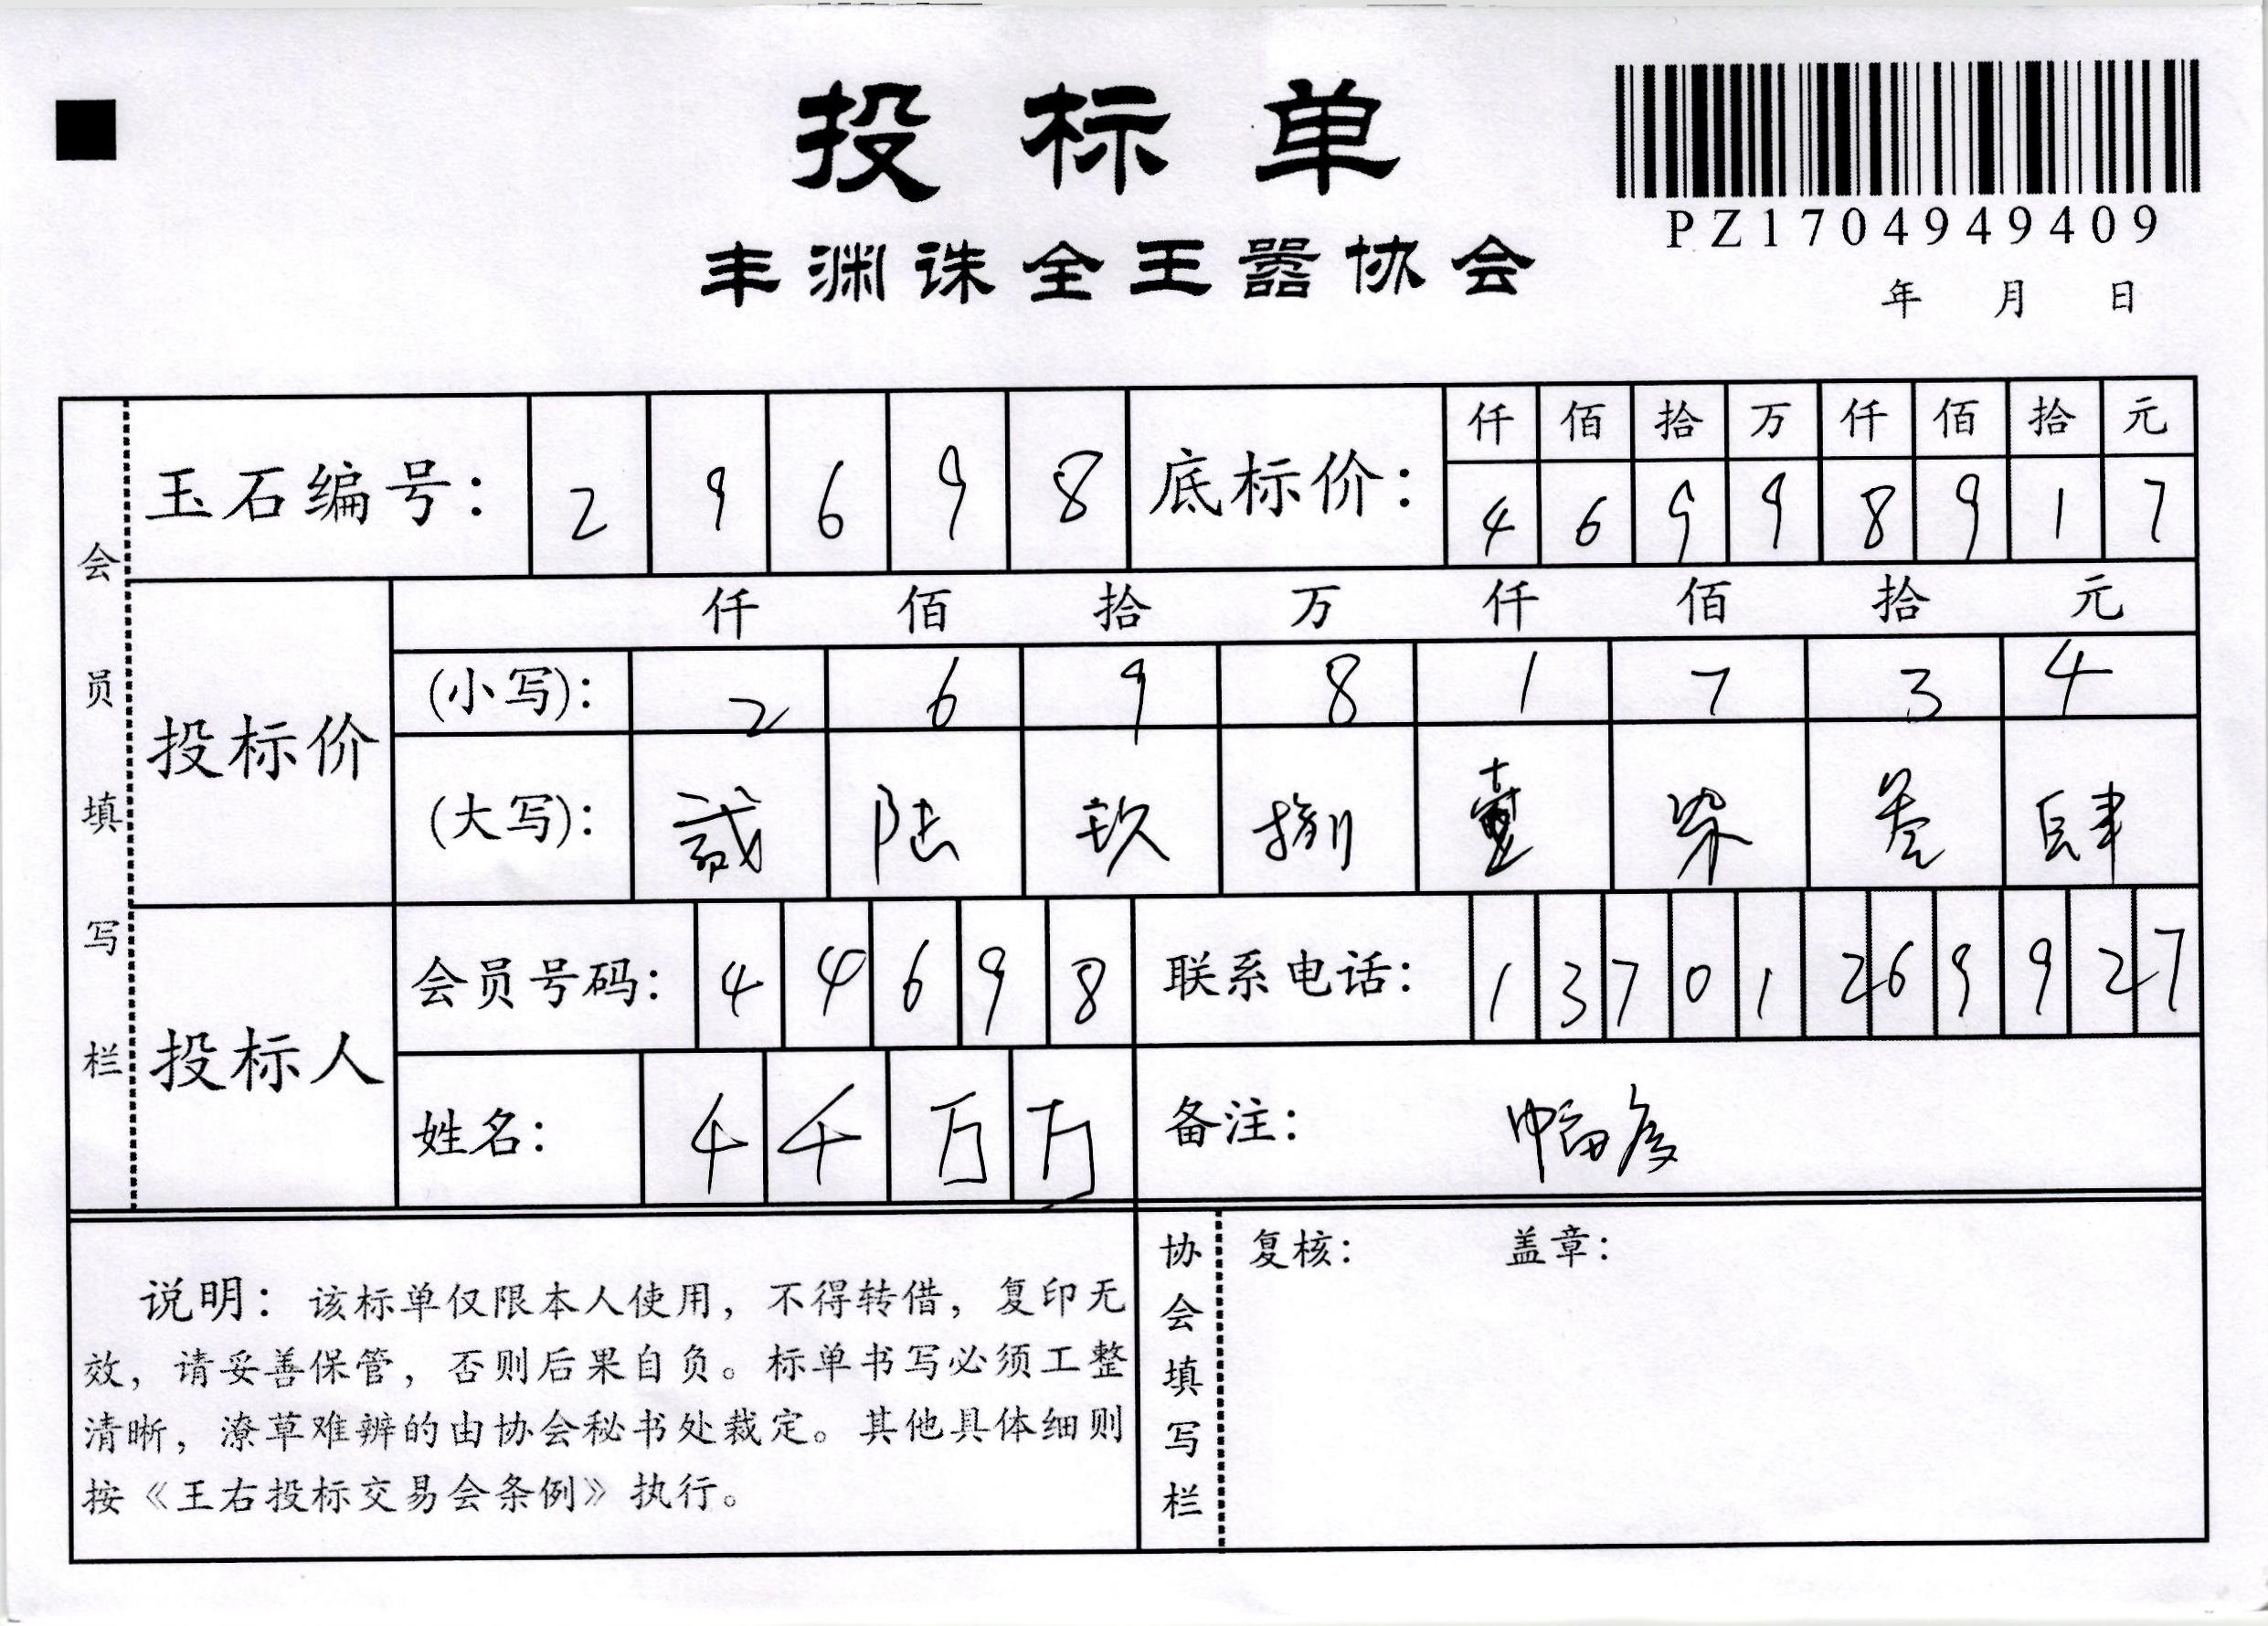 投标单
丰渊诛全王嚣协会
PZ1704949409
年 月 日
会员填写栏
玉石编号: 2 9 6 9 8
底标价: 仟 佰 拾 万 仟 佰 拾 元
4 6 9 9 8 9 1 7
投标价
仟 佰 拾 万 仟 佰 拾 元
(小写): 2 6 9 8 1 7 3 4
(大写): 贰 陆 玖 捌 壹 柒 叁 肆
投标人
会员号码: 4 4 6 9 8
联系电话: 1 3 7 0 1 2 6 9 9 2 7
姓名:
备注:
说明：该标单仅限本人使用，不得转借，复印无
效，请妥善保管，否则后果自负。标单书写必须工整
清晰，潦草难辨的由协会秘书处裁定。其他具体细则
按《王右投标交易会条例》执行。
协会填写栏
复核: 盖章: